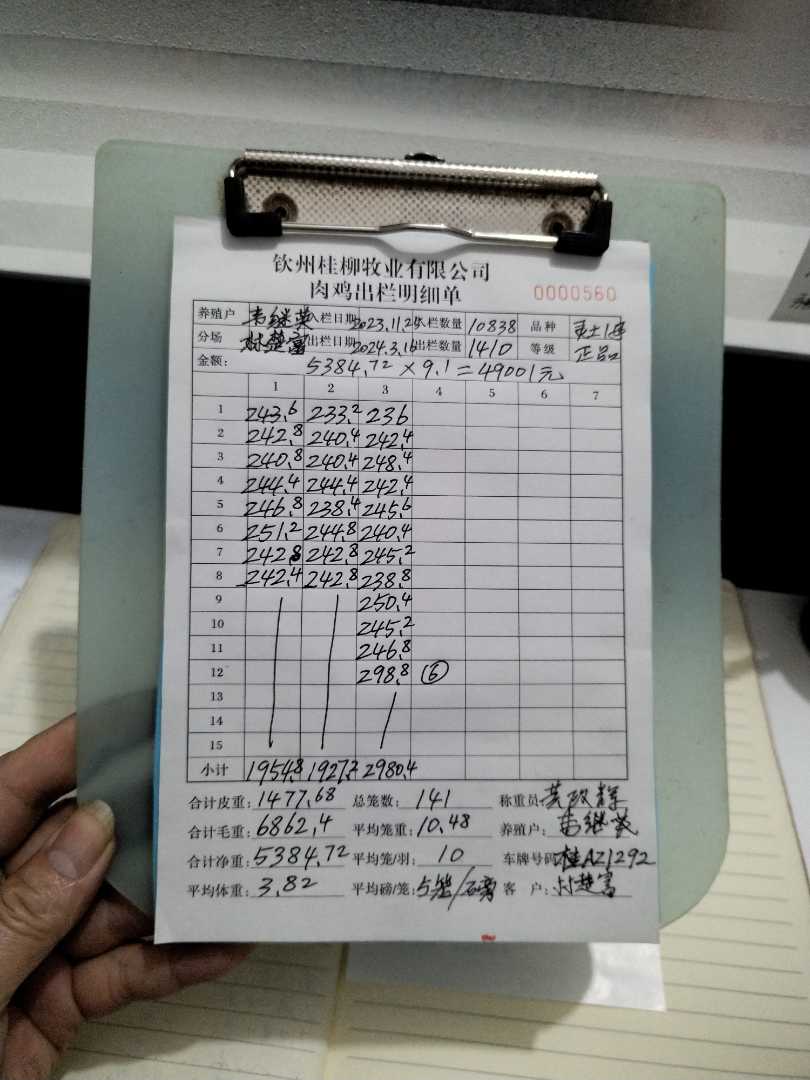 钦州桂柳牧业有限公司
肉鸡出栏明细单 0000560
养殖户 韦继英 入栏日期 2023.11.25 入栏数量 10838 品种
分场 林楚富 出栏日期 2024.3.16 出栏数量 1410 等级 正品
金额: 5384.72 × 9.1 = 49001元
1 2 3 4 5 6 7
1 243.6 233.2 236
2 242.8 240.4 242.4
3 240.8 240.4 248.4
4 244.4 244.4 242.4
5 246.8 238.4 245.6
6 251.2 244.8 240.4
7 242.8 242.8 245.2
8 242.4 242.8 238.8
9 250.4
10 245.2
11 246.8
12 298.8 ⑥
13
14
15
小计 1954.8 1927.2 2980.4
合计皮重: 1477.68 总笼数: 141 称重员
合计毛重: 6862.4 平均笼重: 10.48 养殖户: 韦继英
合计净重: 5384.72 平均笼/羽: 10 车牌号码: 桂AZ1292
平均体重: 3.82 平均磅/笼: 5笼/磅 客户: 林楚富